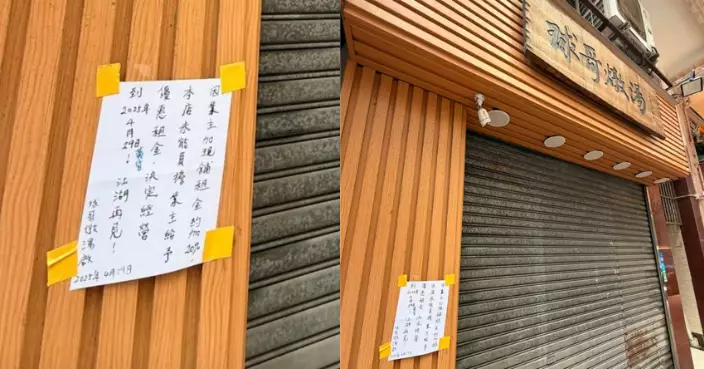 因業主加現鋪租金約加20%!
本店未能負擔業主給予
優惠租金,決定經營
到2025年4月29日黃昏!江湖再見!
球哥燉湯啟
2025年4月19日
球哥燉湯